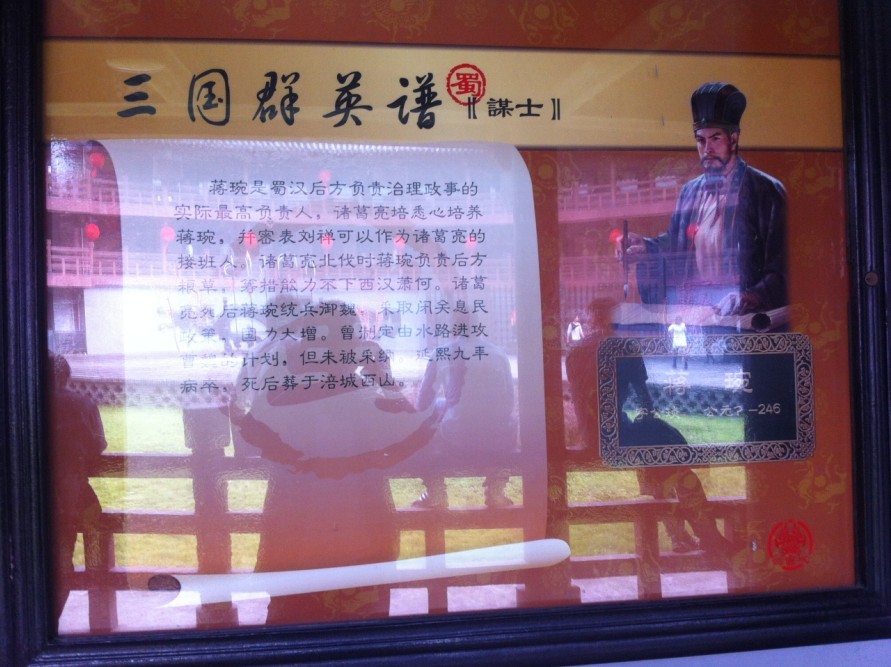 三国群英谱 蜀 〖謀士〗
蒋琬是蜀汉后方负责治理政事的
实际最高负责人，诸葛亮培悉心培养
蒋琬，并密表刘禅可以作为诸葛亮的
接班人。诸葛亮北伐时蒋琬负责后方
粮草，筹措能力不下西汉萧何。诸葛
亮死后蒋琬统兵御魏，采取闭关息民
政策，国力大增。曾制定由水路进攻
曹魏的计划，但未被采纳。延熙九年
病卒，死后葬于涪城西山。
蒋琬
字公琰 公元？-246